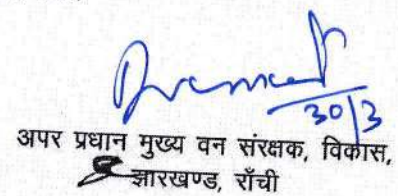 30/3
अपर प्रधान मुख्य वन संरक्षक, विकास,
झारखण्ड, राँची